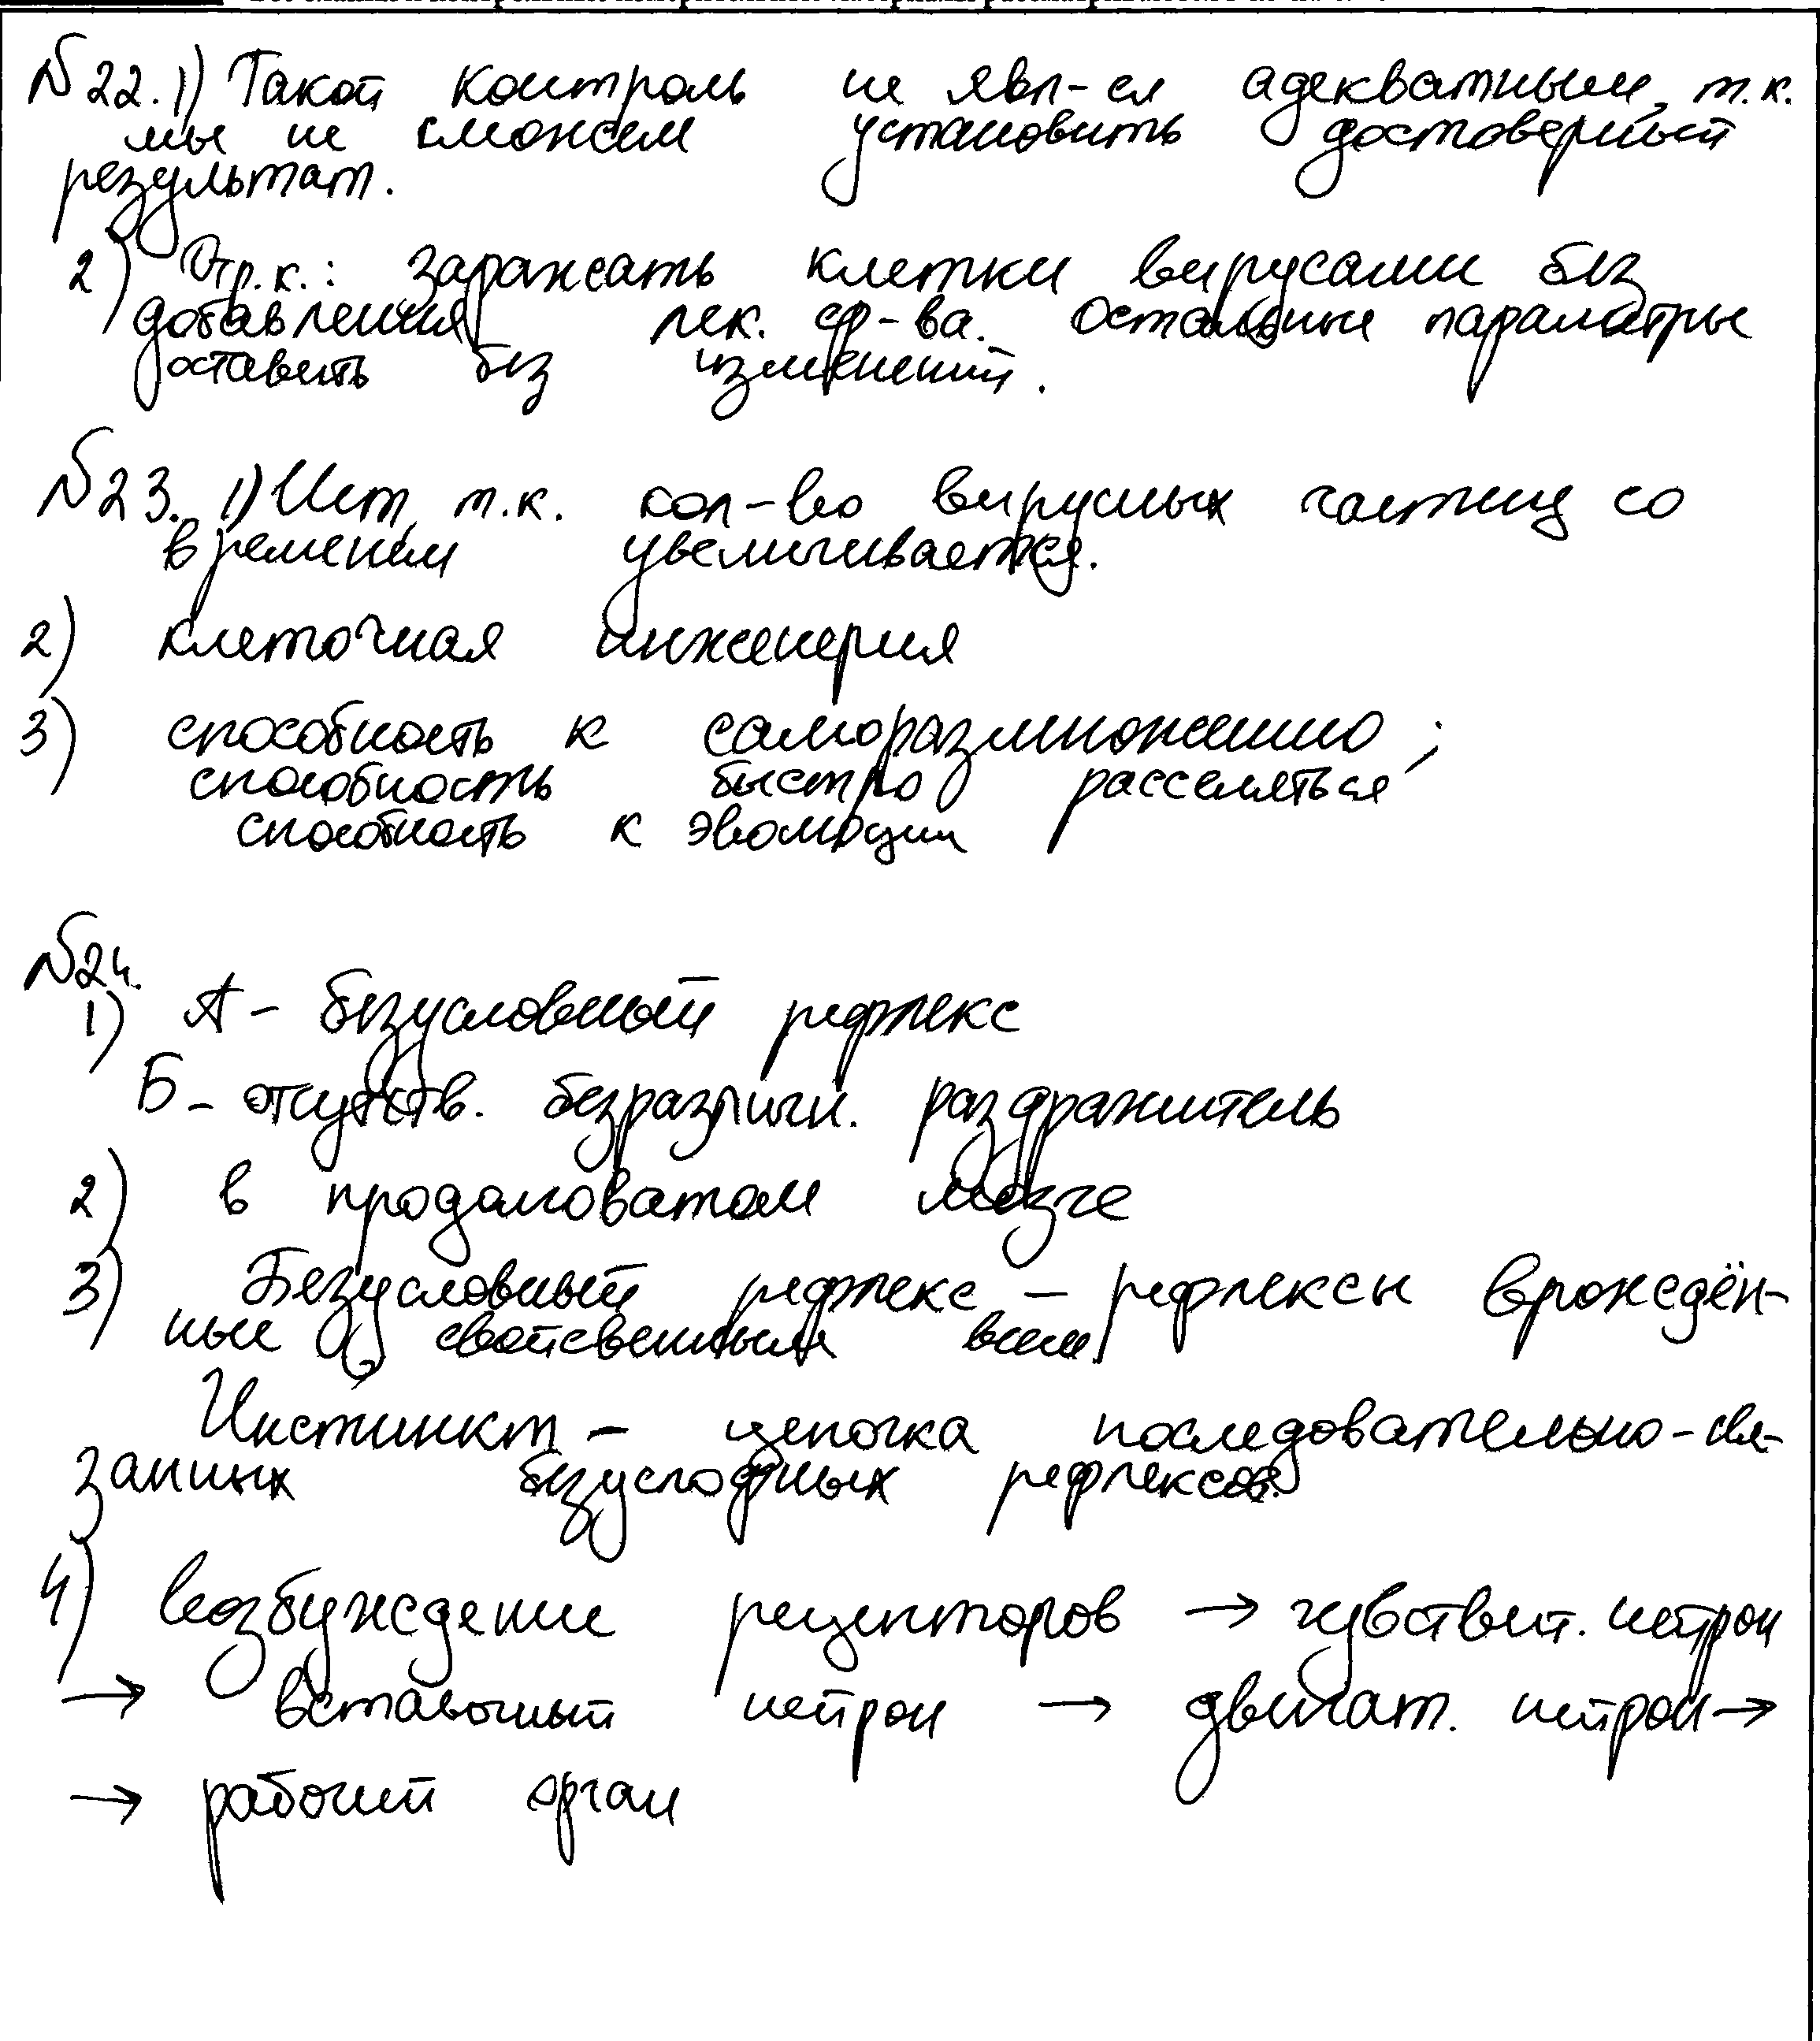 №22. 1) Такой контроль не явл-ся адекватным, т.к.
мы не сможем установить достоверный
результат.
2) Отр.к.: заражать клетки вирусами без
добавления лек. ср-ва. Остальные параметры
оставить без изменений.
№23. 1) Нет, т.к. кол-во вирусных частиц со
временем увеличивается.
2) клеточная инженерия
3) способность к саморазмножению;
способность быстро расселяться
способность к эволюции
№24.
1) А - безусловный рефлекс
Б - отсутств. безразличн. раздражитель
2) в продолговатом мозге
3) Безусловный рефлекс - рефлексы врождён-
ные, свойсвенныя всем.
Инстинкт - цепочка последовательно-свя-
занных безусловных рефлексов.
4) возбуждение рецепторов → чувствит. нейрон
→ вставочный нейрон → двигат. нейрон →
→ рабочий орган